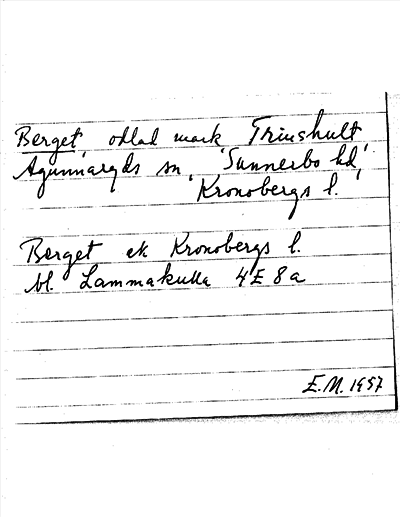 Berget, odlad mark Trinshult
Agunnaryds sn, Sunnerbo hd,
Kronobergs l.
Berget ek Kronobergs l.
bl. Lammakulla 4E 8a
E.M. 1957